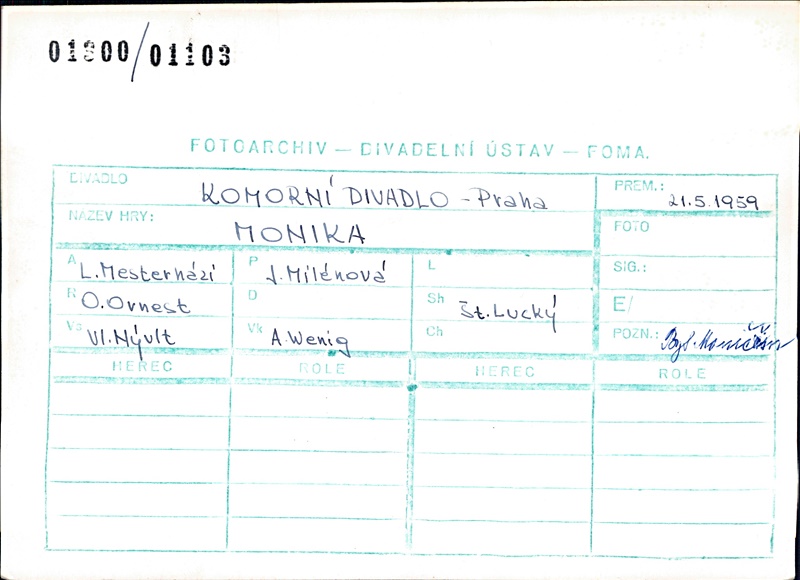 01900/01103
FOTOARCHIV — DIVADELNÍ ÚSTAV — FOMA.
DIVADLO KOMORNÍ DIVADLO - Praha PREM.: 21.5.1959
NÁZEV HRY: MONIKA FOTO
A L. Mesterházi P J. Milénová L SIG.:
R O. Ornest D Sh Št. Lucký E/
Vs Vl. Nývlt Vk A. Wenig Ch POZN.:
HEREC ROLE HEREC ROLE